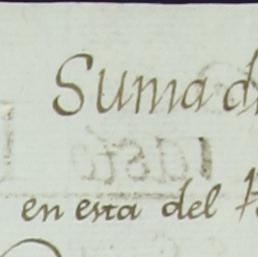 Suma d
en esta del P